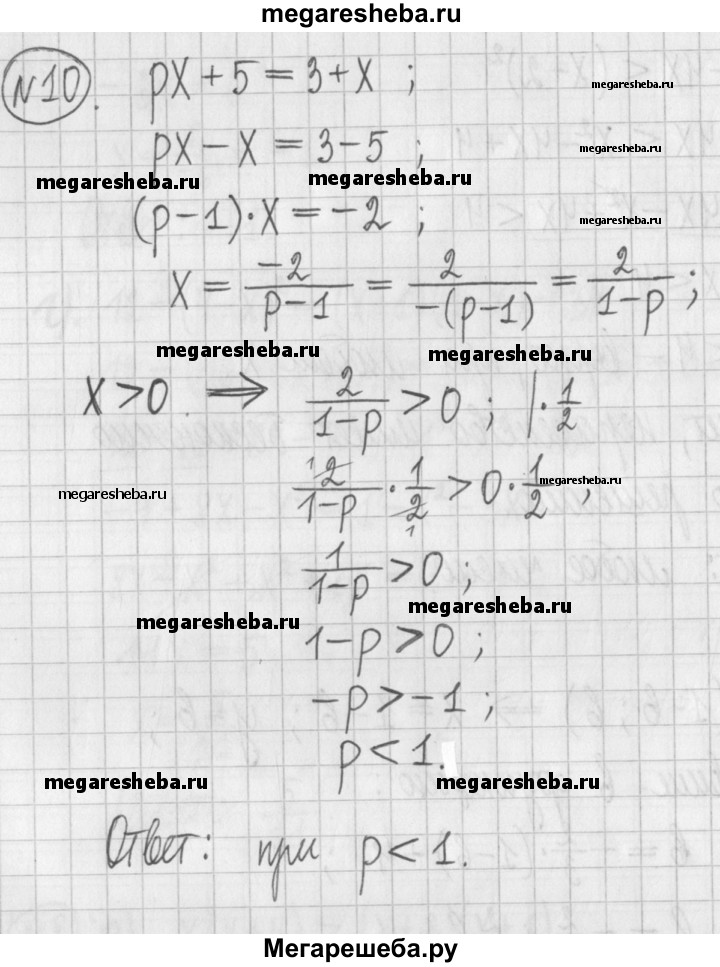 megaresheba.ru
№10. px + 5 = 3 + x ;
megaresheba.ru
px − x = 3 − 5 ;
megaresheba.ru
megaresheba.ru
megaresheba.ru
(p − 1) · x = −2 ;
megaresheba.ru
x = −2/(p − 1) = 2/(−(p − 1)) = 2/(1 − p) ;
megaresheba.ru
megaresheba.ru
x > 0 ⇒ 2/(1 − p) > 0 ; | · 1/2
megaresheba.ru
2/(1 − p) · 1/2 > 0 · 1/2 ;
megaresheba.ru
1/(1 − p) > 0 ;
megaresheba.ru
megaresheba.ru
1 − p > 0 ;
−p > −1 ;
p < 1.
megaresheba.ru
megaresheba.ru
Ответ: при p < 1.
Мегарешеба.ру